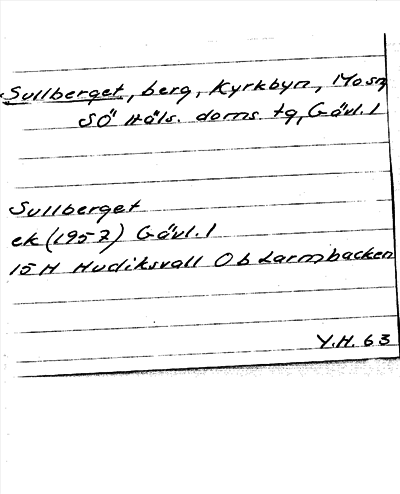 Sullberget, berg, Kyrkbyn, Mo sn
SÖ Häls. doms. tg, Gävl. l
Sullberget
ek (1957) Gävl. l
15H Hudiksvall 0b Larmbacken
Y.H. 63